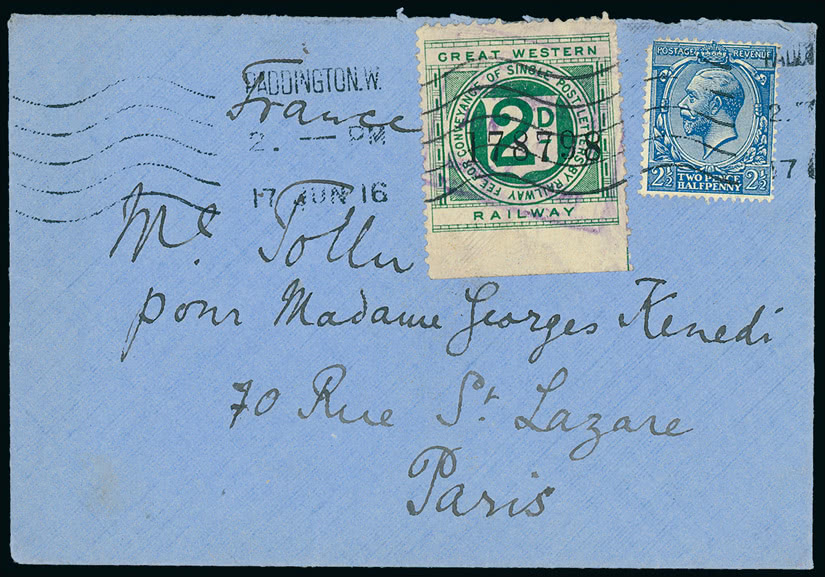 PADDINGTON.W.
2. — PM
17 JUN 16
GREAT WESTERN
FEE FOR CONVEYANCE OF SINGLE POST LETTERS BY RAILWAY
2D
178798
RAILWAY
POSTAGE REVENUE
TWO PENCE
HALFPENNY
2½ 2½
PADD
2.
17
France
pour Madame Georges Kenedi
70 Rue St. Lazare
Paris